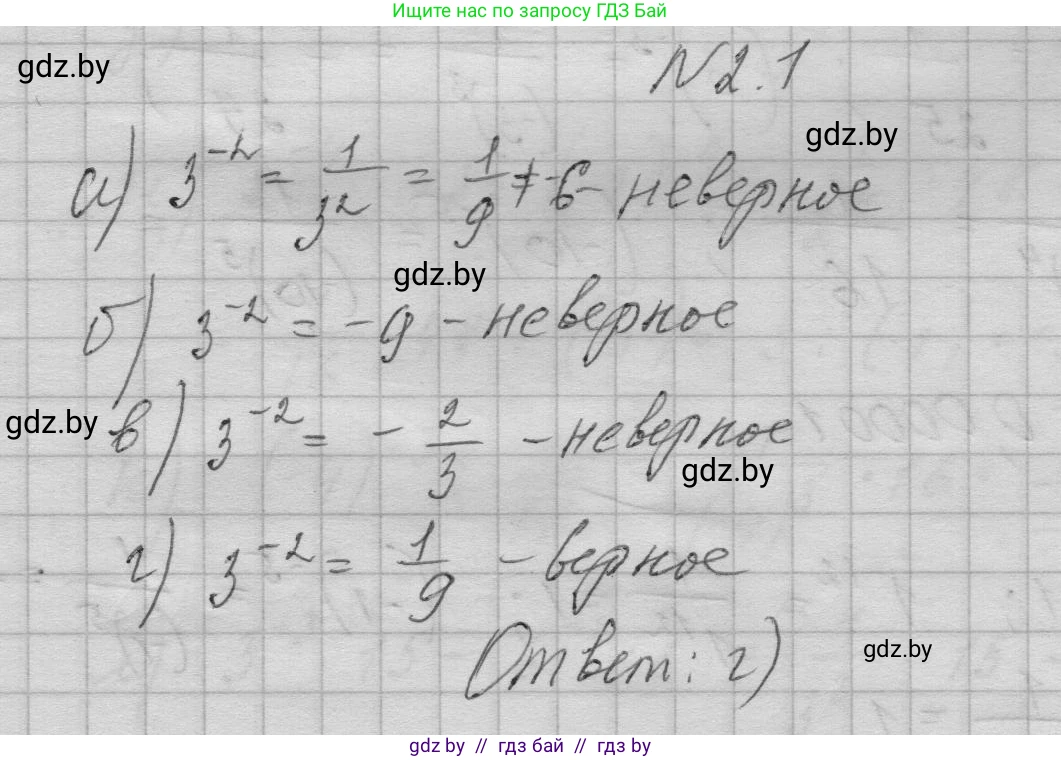 Ищите нас по запросу ГДЗ Бай
gdz.by
N 2.1
gdz.by
а) 3⁻² = 1/3² = 1/9 ≠ -6 - неверное
gdz.by
б) 3⁻² = -9 - неверное
gdz.by
в) 3⁻² = - 2/3 - неверное
gdz.by
г) 3⁻² = 1/9 - верное
Ответ: г)
gdz.by
gdz by // гдз бай // гдз by